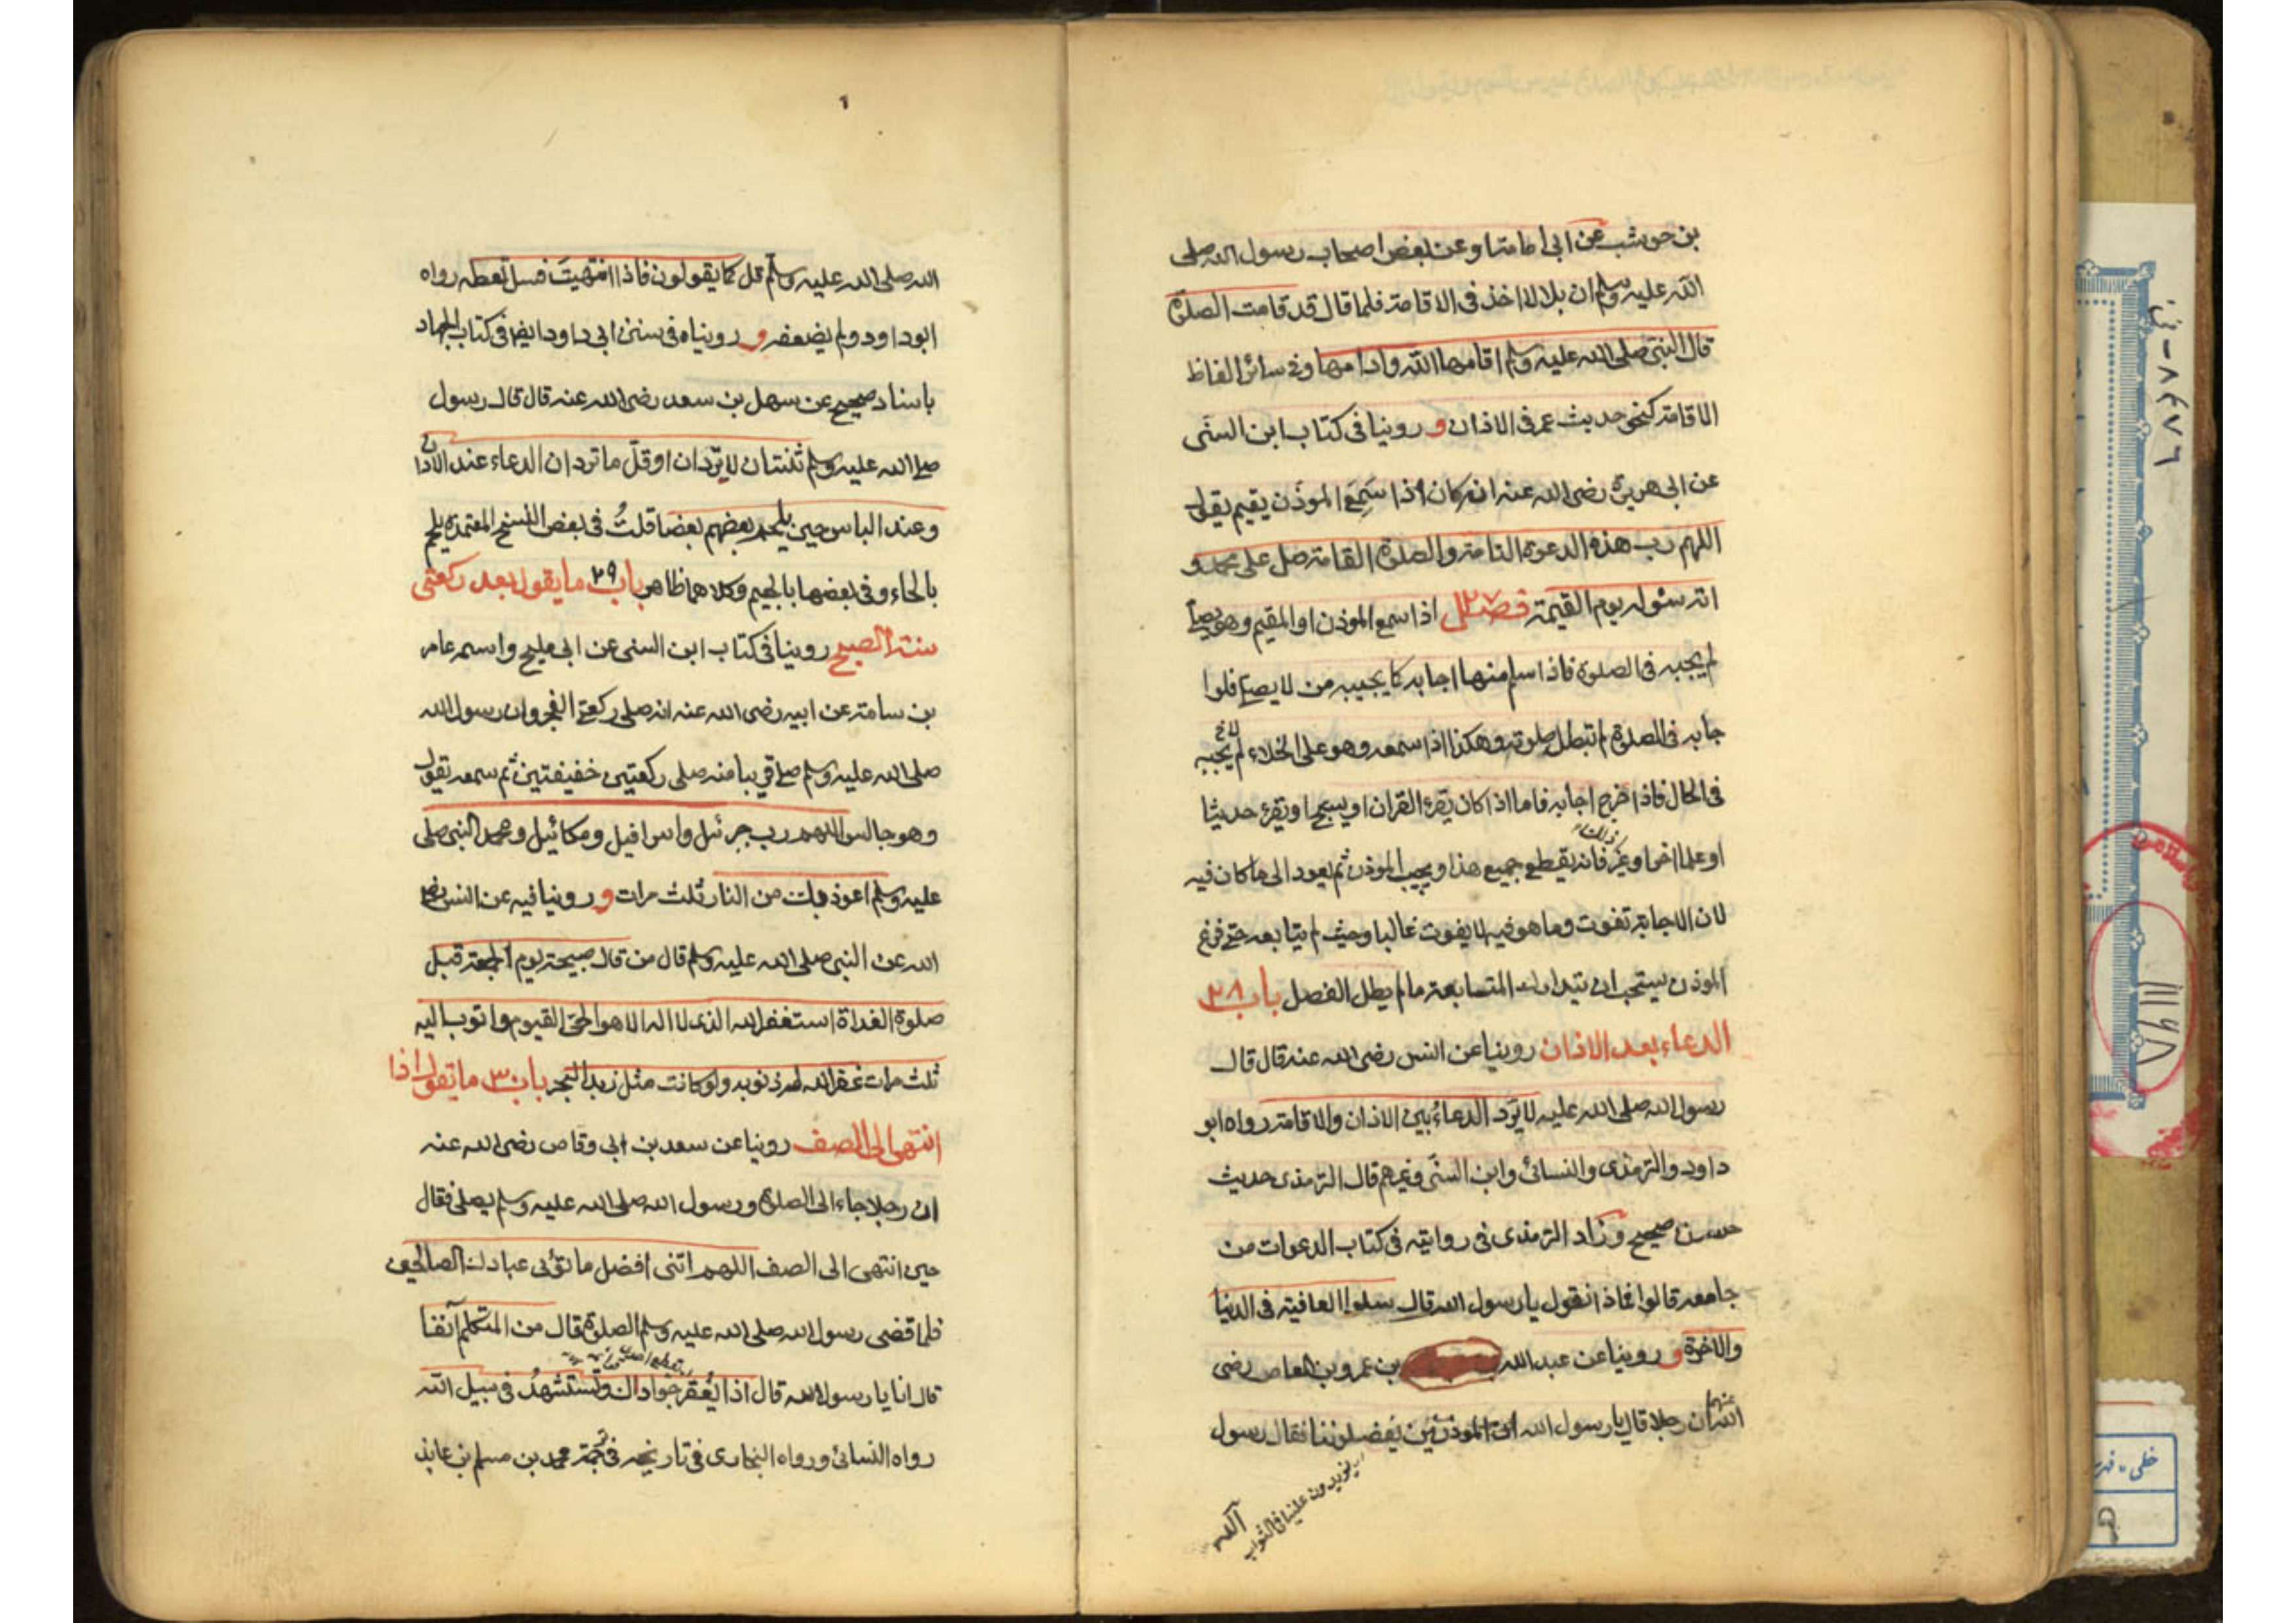 بن حوشب عن ابی امامة او عن بعض اصحاب رسول الله صلی
الله علیه وسلم ان بلالا اخذ فی الاقامة فلما قال قد قامت الصلوة
قال النبی صلی الله علیه وسلم اقامها الله وادامها وفی سائر الفاظ
الاقامة کنحو حدیث عمر فی الاذان و روینا فی کتاب ابن السنّی
عن ابی هریرة رضی الله عنه انه کان اذا سَمِعَ الموذّن یقیم یقول
اللهم رب هذه الدعوة التامة والصلوة القامة صل علی محمد و
اته سئوله یوم القیٰمة فصل ٢٧ اذا سمع الموذن او المقیم وهو یصلی
لم یجبه فی الصلوة فاذا سلم منها اجابه کما یجیبه من لا یصلی فلو ا
جابه فی الصلوة لم تبطل صلوته وهکذا اذا سمعه وهو علی الخلاء لم یجبه
فی الحال فاذا خرج اجابه فاما اذا کان یقرء القران او یسبح او یقرء حدیثا
او علما اخر او غیر ذلک فانه یقطع جمیع هذا ویجیب الموذن ثم یعود الی ما کان فیه
لان الاجابة تفوت وما هو فیه لا یفوت غالبا وحیث لم یتابعه حتی فرغ
الموذن یستحب ان یتدارک المتابعة ما لم یطل الفصل باب ٢٨
الدعاء بعد الاذان روینا عن انس رضی الله عنه قال قال
رسول الله صلی الله علیه لا یُرَد الدعاءُ بین الاذان والاقامة رواه ابو
داود والترمذی والنسائی وابن السنّی وغیرهم قال الترمذی حدیث
حسن صحیح وزاد الترمذی فی روایته فی کتاب الدعوات من
جامعه قالوا فماذا نقول یا رسول الله قال سلوا العافیة فی الدنیا
والاخرة و روینا عن عبد الله بن عمرو بن العاص رضی
الله عنهما ان رجلا قال یا رسول الله ان الموذنین یَفضلوننا فقال رسول
یزیدون علینا فی الثواب
الله صلی الله علیه وسلم قل کما یقولون فاذا انتهیتَ فسل تعطه رواه
ابو داود ولم یضعفه و رویناه فی سنن ابی داود ایضا فی کتاب الجهاد
باسناد صحیح عن سهل بن سعد رضی الله عنه قال قال رسول
صلی الله علیه وسلم ثنتان لا یُرّدان او قلّ ما تردان الدعاء عند الاذان
وعند الباس حین یلحم بعضهم بعضا قلتُ فی بعض النسخ المعتمدة یلحم
بالحاء وفی بعضها بالجیم وکلاهما ظاهر باب ٢٩ ما یقول بعد رکعتی
سنة الصبح روینا فی کتاب ابن السنی عن ابی ملیح واسمه عامر
بن سامة عن ابیه رضی الله عنه انه صلی رکعتی الفجر وان رسول الله
صلی الله علیه وسلم صلی قریبا منه صلی رکعتین خفیفتین ثم سمعه تقول
وهو جالس اللهم رب جبرئیل واسرافیل ومکائیل ومحمد النبی صلی
علیه وسلم اعوذ بک من النار ثلث مرات و روینا فیه عن انس رضی
الله عن النبی صلی الله علیه وسلم قال من قال صبیحة یوم الجمعة قبل
صلوة الغداة استغفر الله الذی لا اله الا هو الحیّ القیوم واتوب الیه
ثلث مرات غفر الله له ذنوبه ولو کانت مثل زبد البحر باب ٣٠ ما تقول اذا
انتهی الی الصف روینا عن سعد بن ابی وقاص رضی الله عنه
ان رجلا جاء الی الصلوة ورسول الله صلی الله علیه وسلم یصلی فقال
حین انتهی الی الصف اللهم اتنی افضل ما تؤتی عبادک الصالحین
فلما قضی رسول الله صلی الله علیه وسلم الصلوة قال من المتکلم آنفا
قال انا یا رسول الله قال اذا یُعقر جوادک وتُستشهدُ فی سبیل الله
رواه النسائی ورواه البخاری فی تاریخه فی ترجمة محمد بن مسلم بن عایذ